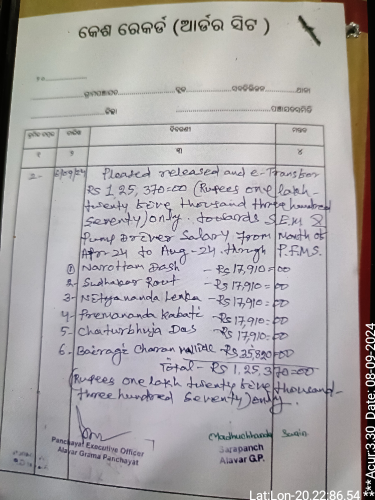 କେଶ ରେକର୍ଡ (ଆର୍ଡର ସିଟ)
ନଂ
ଗ୍ରାମପଞ୍ଚାୟତ ବ୍ଲକ ଥାନା
ଜିଲ୍ଲା ପଞ୍ଚାୟତସମିତି
ତାରିଖ ବିବରଣୀ ମନ୍ତବ୍ୟ
୧ ୨ ୩ ୪
2- 6/09/24 Pleased released and e-Transfer
Rs 1,25,370=00 (Rupees one lakh-
twenty five thousand three hundred
Seventy) only. towards S.E.M &
Pump Driver Salary From Month of
Apr-24 to Aug-24. through P.F.M.S.
① Narottam Dash - Rs 17,910=00
2- Sudhakar Rout - Rs 17,910=00
3- Nityananda Lenka - Rs 17,910=00
4- Premananda Kabata - Rs 17,910=00
5- Chaturbhuja Das - Rs 17,910=00
6- Bairagi Charan Mallick - Rs 35,820=00
Total - Rs 1,25,370=00
(Rupees one lakh twenty five thousand-
three hundred Seventy) only.
Panchayat Executive Officer
Alavar Grama Panchayat
Madhuchhanda Swain
Sarapanch
Alavar G.P.
Lat:Lon-20.22:86.54
***Acur:3.30 Date: 08-09-2024